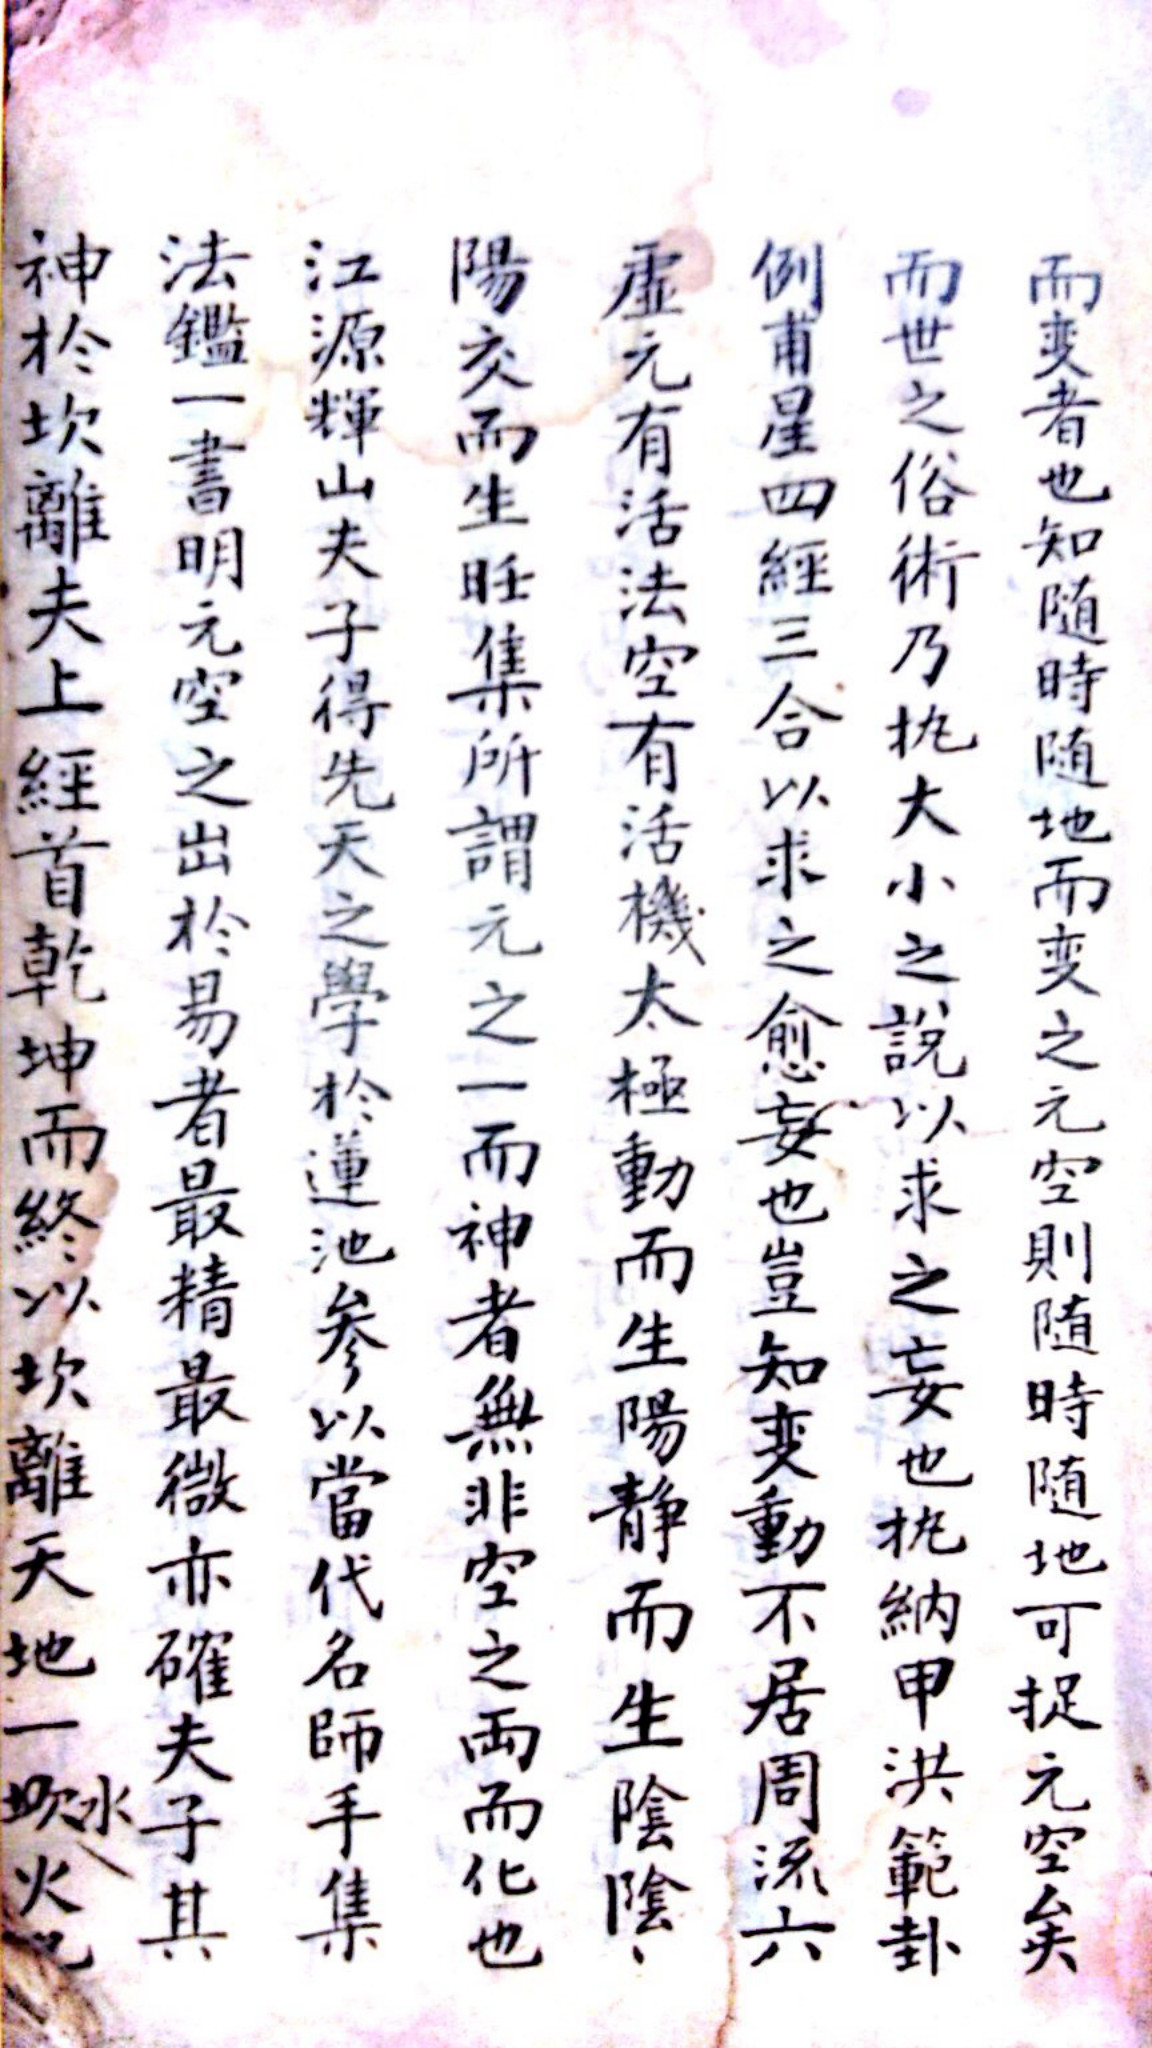 而变者也知随時随地而变之元空則随時随地可捉元空矣
而世之俗術乃执大小之說以求之妄也执納甲洪範卦
例甫星四經三合以求之愈妄也豈知变動不居周流六
虛元有活法空有活機太極動而生陽静而生陰陰、
陽交而生旺集所謂元之一而神者無非空之両而化也
江源輝山夫子得先天之學於蓮池参以當代名師手集
法鑑一書明元空之出於易者最精最微亦確夫子其
神於坎離夫上經首乾坤而終以坎離天地一坎水火